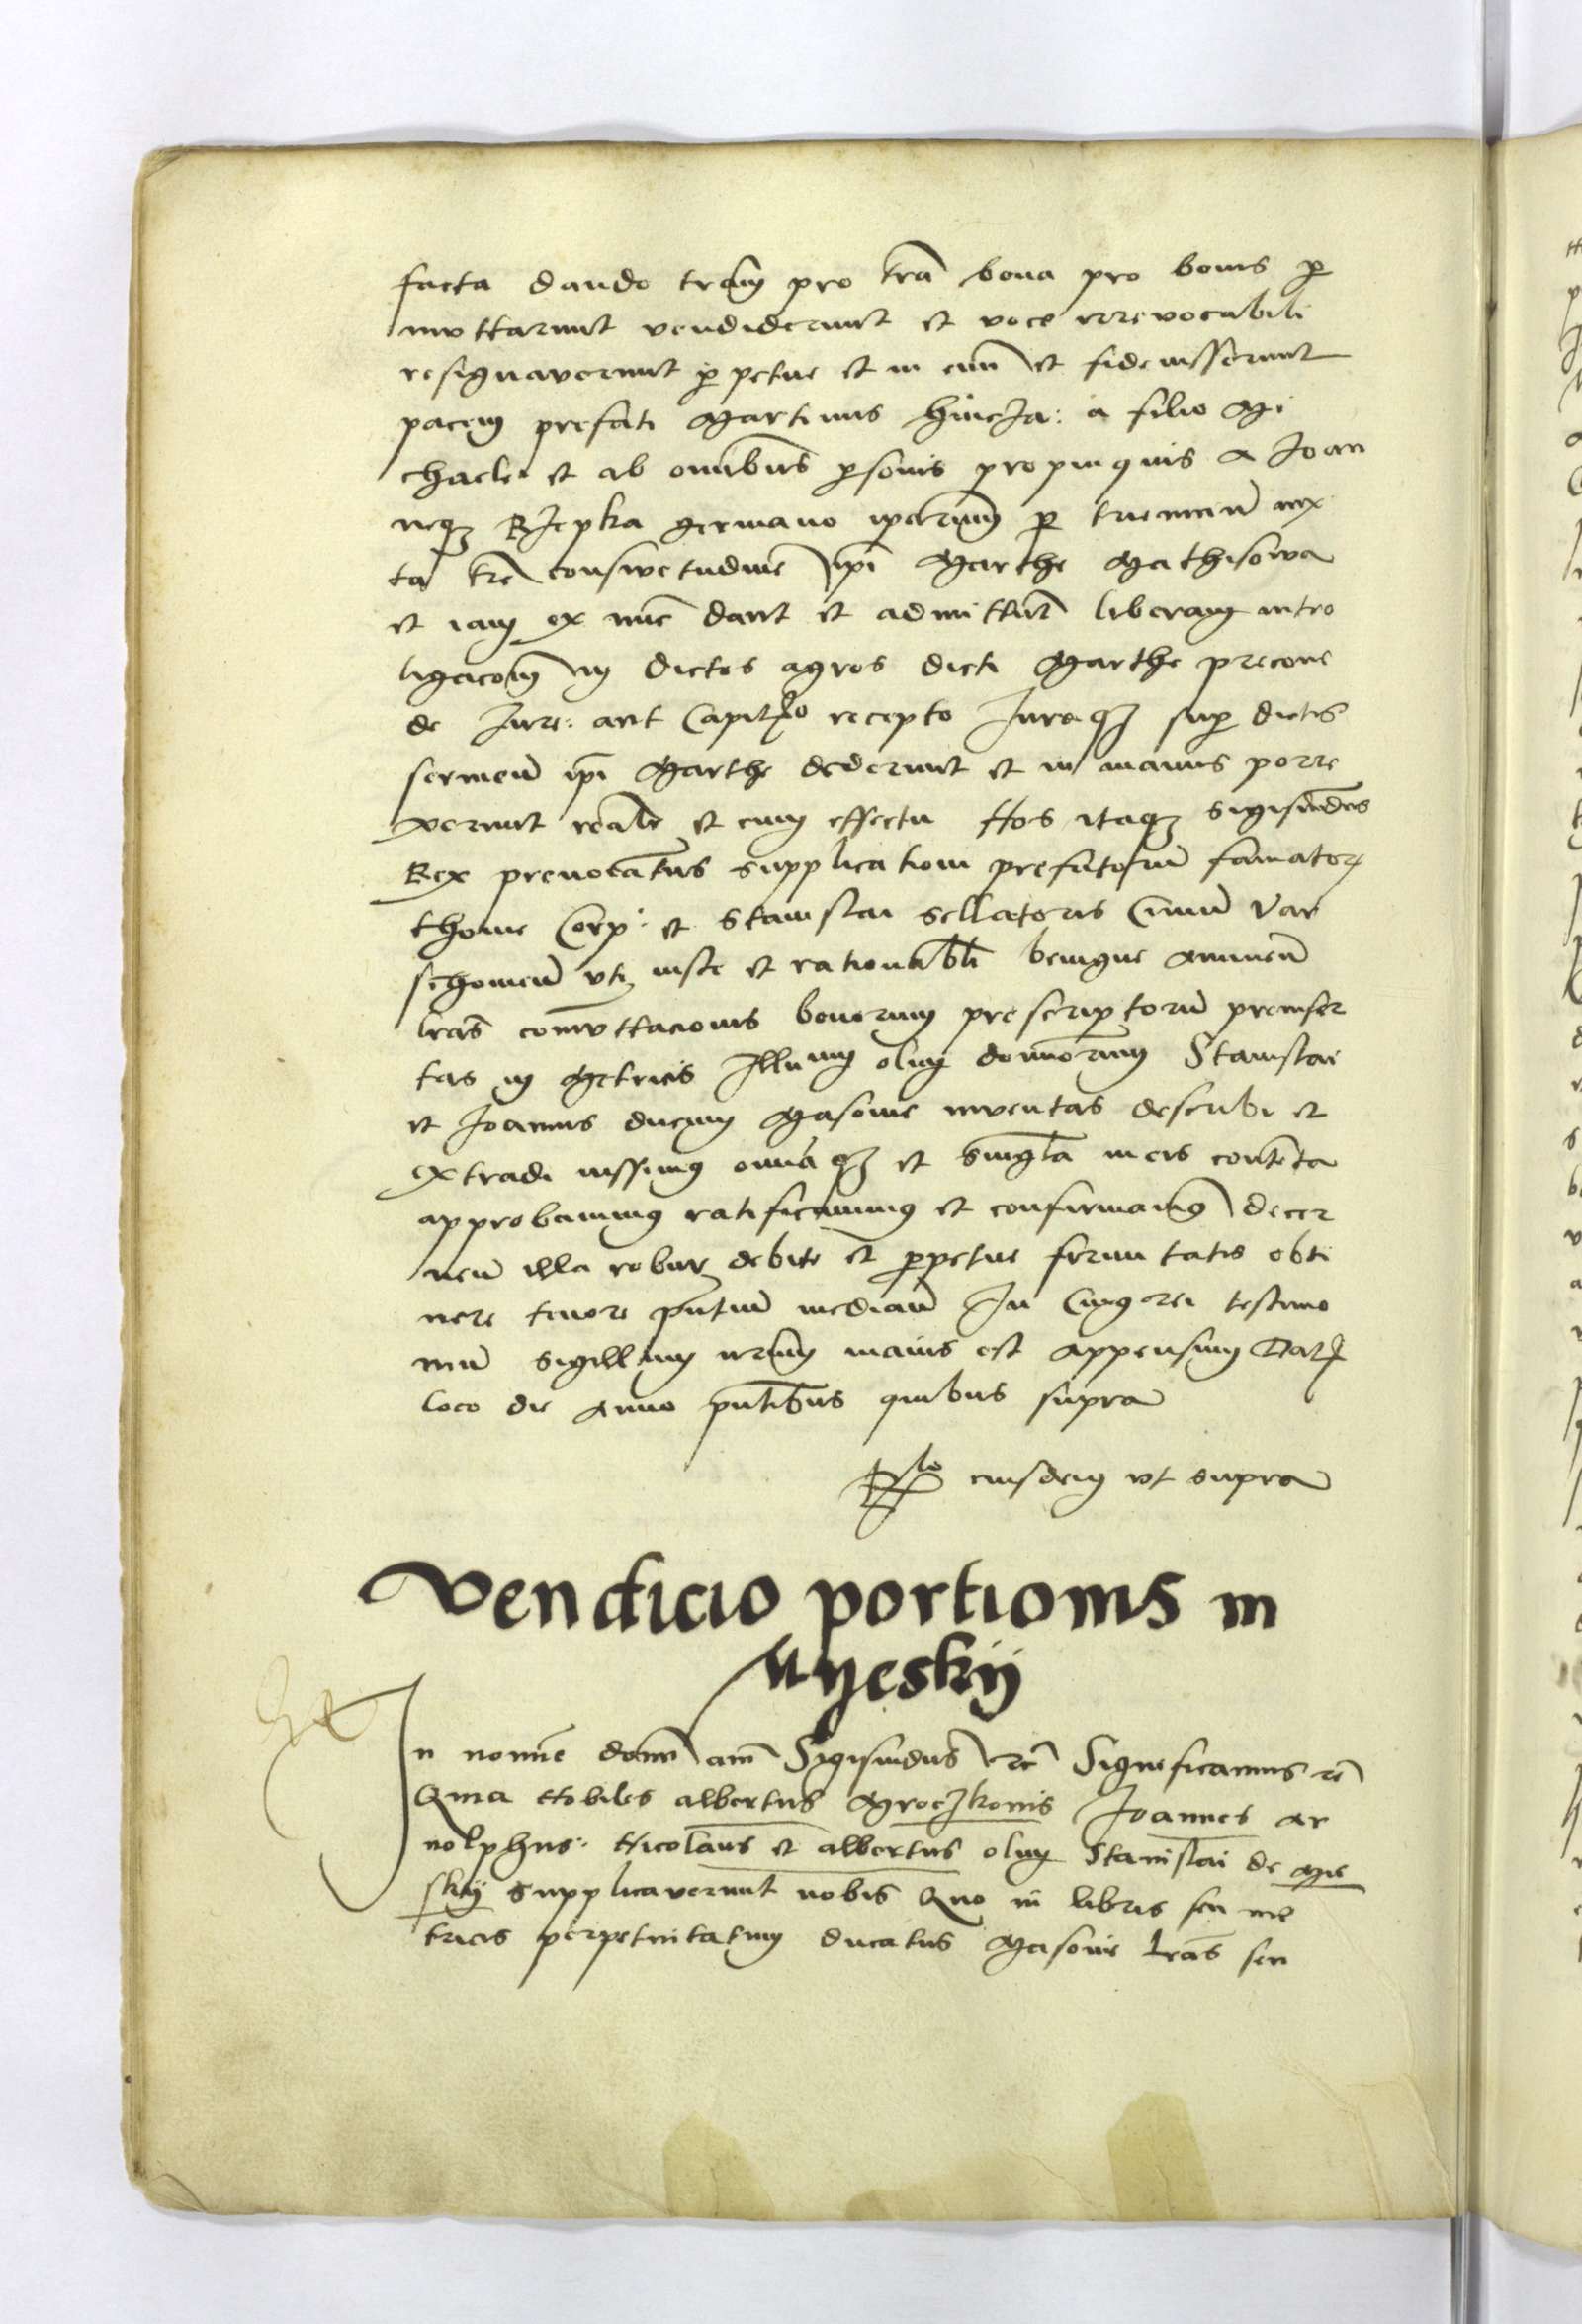 facta dando terram pro terra bona pro bonis per
muttarunt vendiderunt et voce irrevocabili
resignaverunt perpetue et in eum et fideiusserunt
pacem prefati Martinus a filio Mi
chaele et ab omnibus personis propinquis a Joan
neque Rzepka germano ipsorum per triennium iux
ta terre conswetudinem ipsi Marthe Mathisowa
et iam ex nunc dant et admittunt liberam intro
ligacionem in dictos agros dicti Marthe precone
de Jure: aut Capitaneo recepto Juraque super dictis
ipsi Marthe dederunt et in manus porre
xerunt realiter et cum effectu Nos itaque Sigismundus
Rex prenotatus supplicationi prefatorum famatorum
thome Corp: et Stanislai sellatoris Civium Var
schoviensium uti iuste et rationabili benigne annuentes
literas commuttacionis bonorum prescriptorum preinser
tas in Metricis Illustrium olim dominorum Stanislai
et Joannis ducum Masovie inventas describi et
extradi iussimus omniaque et singula in eis contenta
approbavimus ratificavimus et confirmavimus decer
nentes illa robur debite et perpetue firmitatis obti
nere tenore presentium mediante In Cuius rei testimo
nium sigillum nostrum maius est appensum Datum
loco die Anno presentibus quibus supra
Relatio eiusdem ut supra
Vendicio portionis in
Myeskij
In nomine domini amen Sigismundus etc Significamus etc
Quia Nobiles albertus Mroczkonis Joannes ar
nolphus: Nicolaus et albertus olim Stanislai de Mie
skij supplicaverunt nobis Quo in libris seu me
tricis perpetuitatum ducatus Masovie literas seu